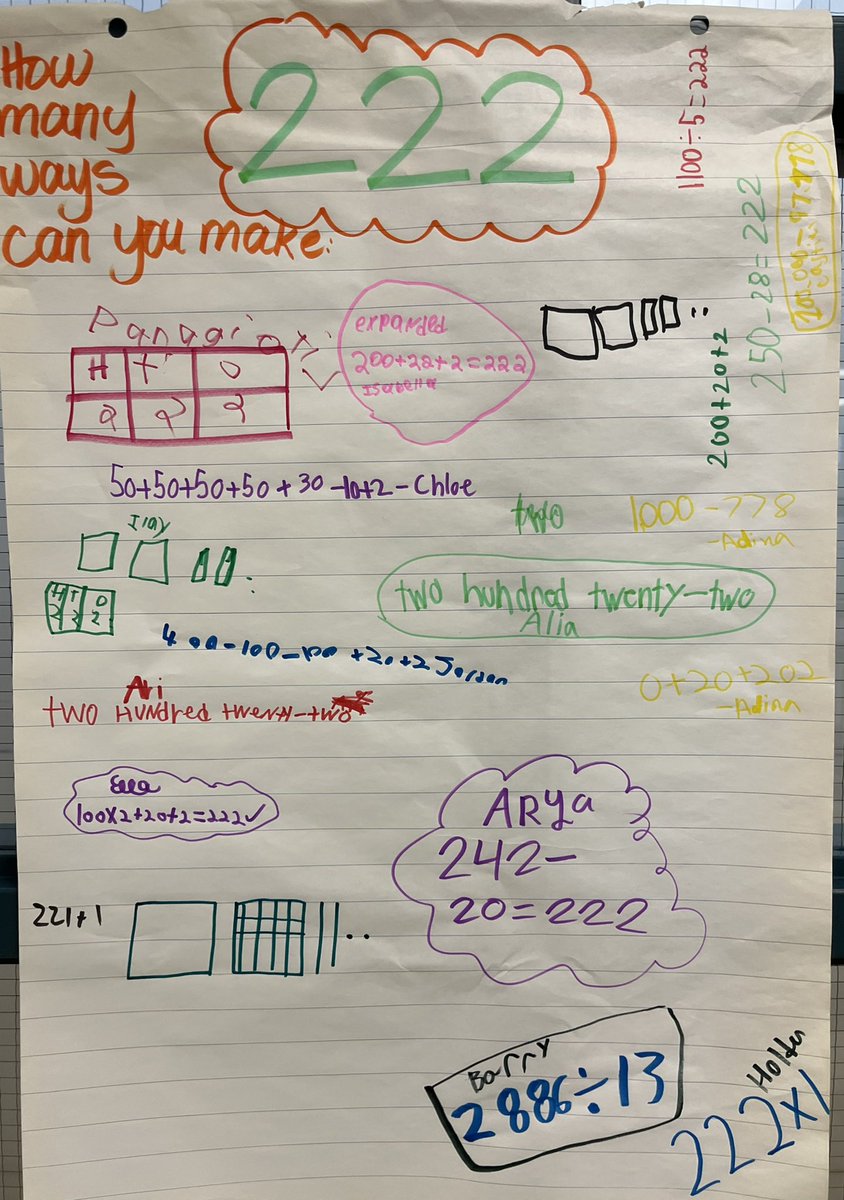 How
many
ways
can you make:
222
1100÷5=222
250-28=222
200+20+2
Panagioti
H T O
2 2 2
expanded
200+22+2=222
Isabella
50+50+50+50+30-10+2-Chloe
two
1000-778
-Adina
H T O
2 2 2
two hundred twenty-two
Alia
400-100-100+20+2 Jordan
Ari
two HUNdred twenty-two
0+20+202
-Adina
100x2+20+2=222✓
ARya
242-
20=222
221+1
Barry
2886÷13
222x1